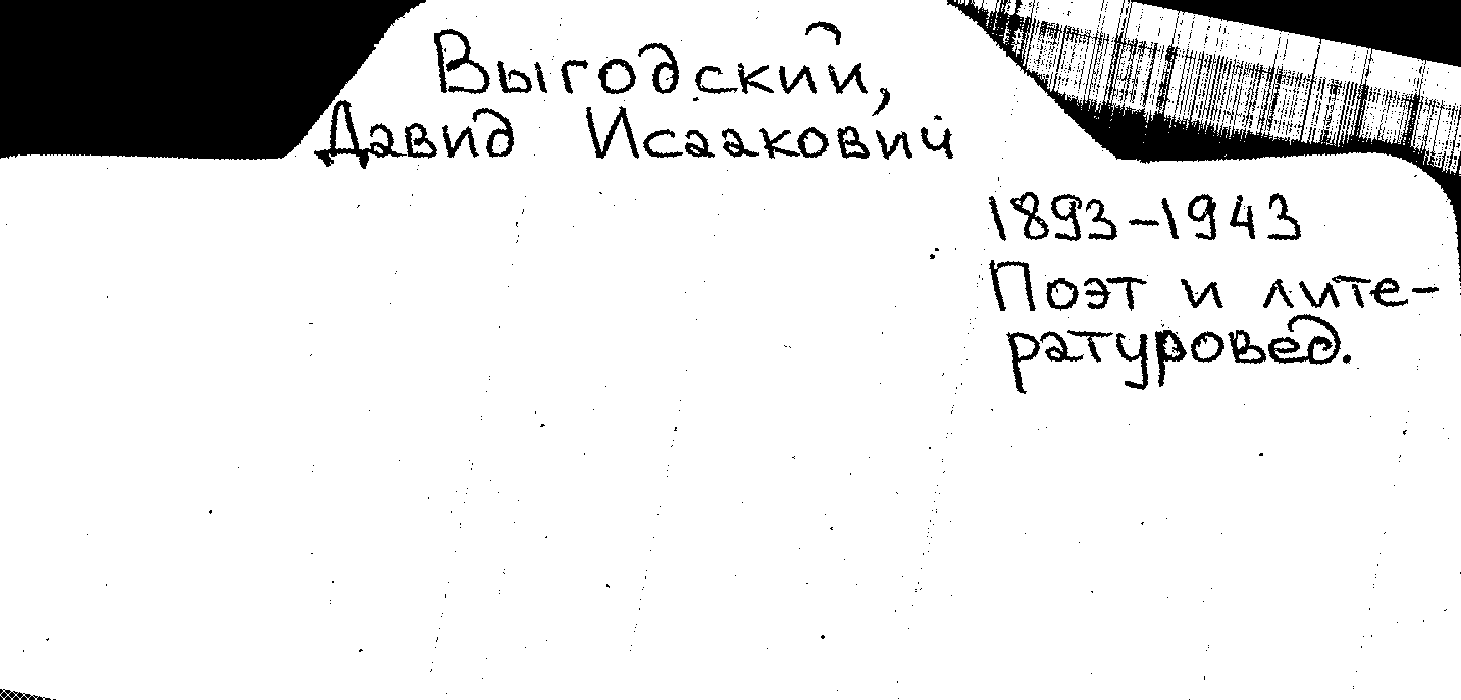 Выгодский,
Давид Исаакович
1893-1943
Поэт и лите-
ратуровед.